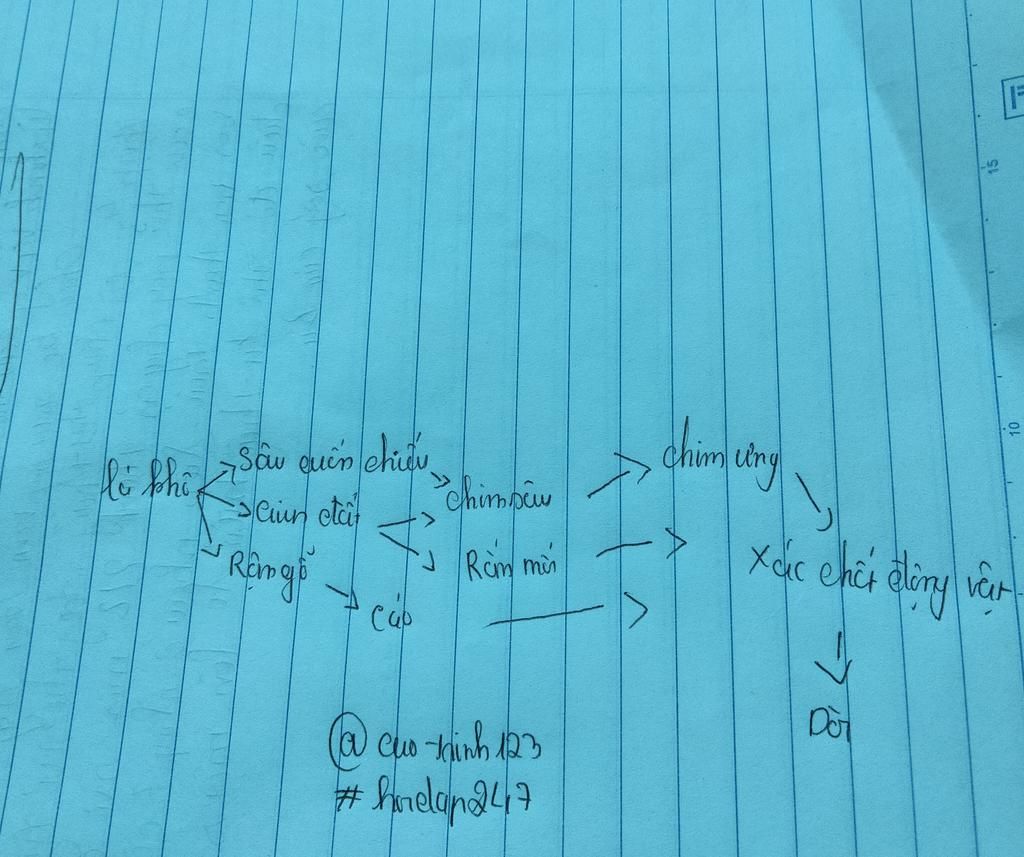 chim ưng
Sâu cuốn chiếu
lá khô
chim sâu
Giun đất
Rắn mối
Rận gỗ
Xác chết động vật
Cáo
Dòi
@ cao-trinh123
# hoidap247
15
10